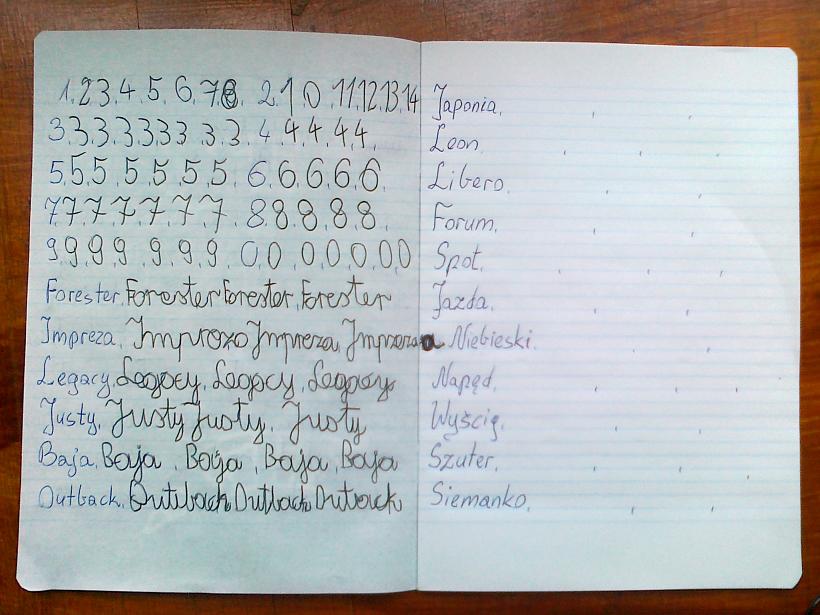 1. 2 3. 4. 5. 6. 7 8 2. 1. 0. 11. 12. 13. 14
3. 3. 3. 3. 3. 3. 3 3. 3. 4. 4. 4. 4. 4.
5. 5. 5. 5. 5. 5. 5. 6. 6. 6. 6. 6.
7. 7. 7. 7. 7. 7. 7. 8. 8. 8. 8. 8.
9. 9. 9. 9. 9. 9. 9. 0. 0. 0. 0. 0. 0. 0
Forester. Forester Forester. Forester
Impreza. Improzo Impreza,
Legacy. Legocy. Legocy.
Justy. Justy Justy. Justy
Baja. Baja. Baja. Baja. Baja
Outback. Outback
Japonia.
Leon
Libero.
Forum.
Spot.
Jazda.
Niebieski.
Napęd.
Wyścig.
Szuter.
Siemanko.